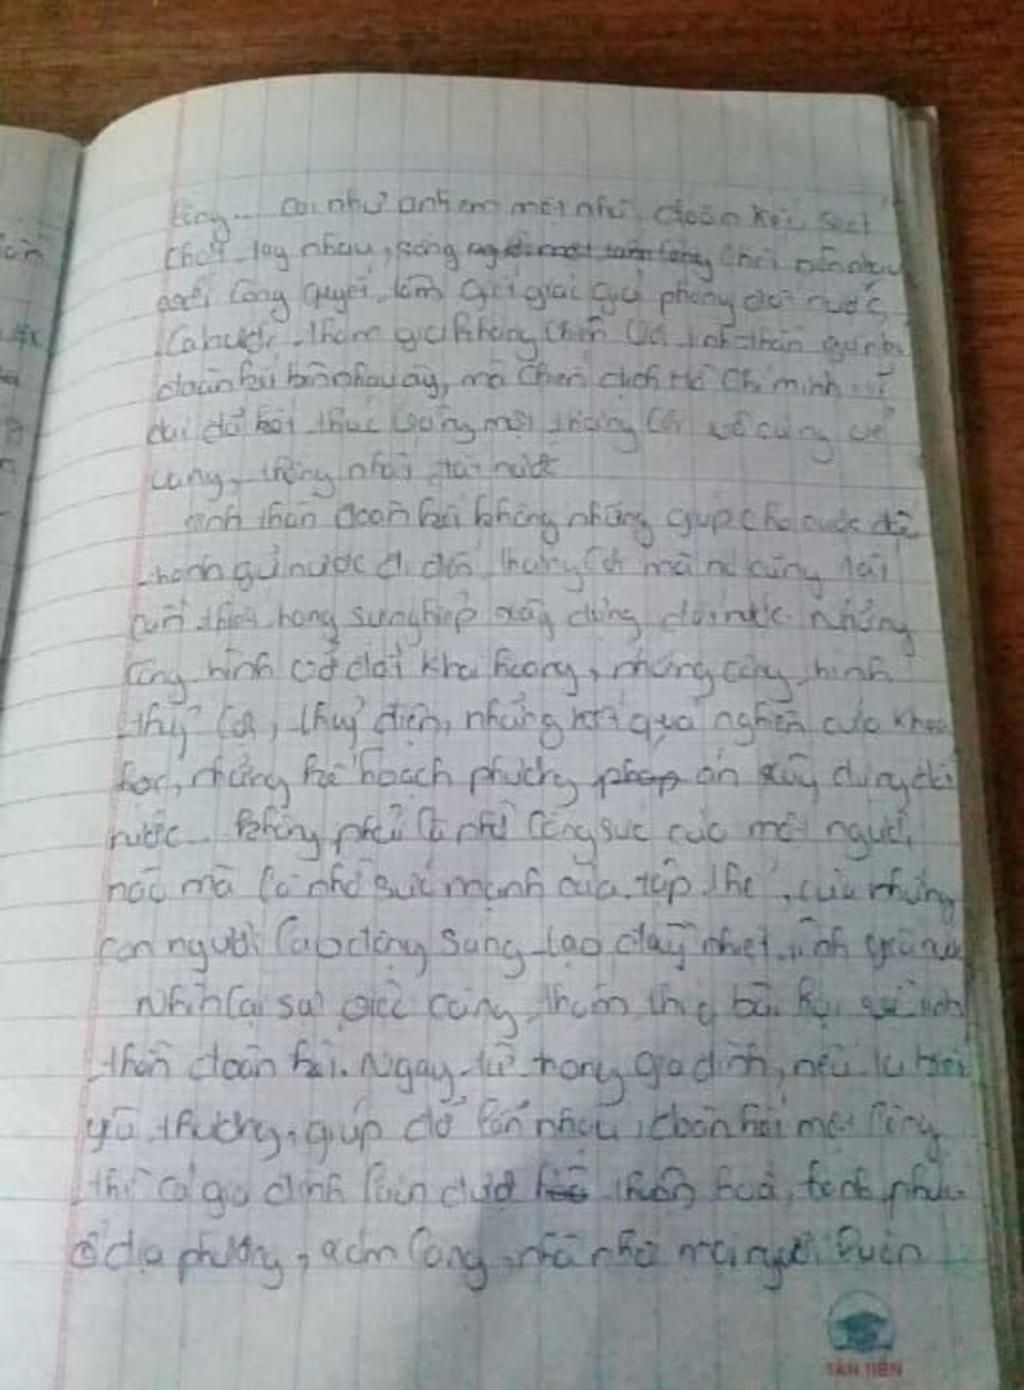 coi như anh em một nhà, đoàn kết, sát
chặt tay nhau, sống
công quyết tâm giải phóng đất nước
Cả nước tham gia kháng chiến với tinh thần
đoàn kết bên nhau ấy, mà chiến dịch Hồ Chí minh
đại đã kết thúc bằng một thắng lợi vô cùng vẻ
vang, thống nhất đất nước
tinh thần đoàn kết không những giúp cho cuộc đấu
tranh giữ nước đi đến thắng lợi mà nó cũng rất
cần thiết trong sự nghiệp xây dựng đất nước. Những
công trình vỡ đất khai hoang, những công trình
thuỷ lợi, thuỷ điện, những kết quả nghiên cứu khoa
học, những kế hoạch phương án xây dựng đất
nước... không phải là nhờ công sức của một người
nào mà là nhờ sức mạnh của tập thể, của những
con người lao động sáng tạo đầy nhiệt tình
Nhìn lại sử
thần đoàn kết. Ngay từ trong gia đình, nếu
yêu thương, giúp đỡ lẫn nhau, đoàn kết một lòng
thì cả gia đình luôn được thuận hoà, hạnh phúc
ở địa phương, xóm làng, nhà nhà mọi người luôn
TÂN TIẾN